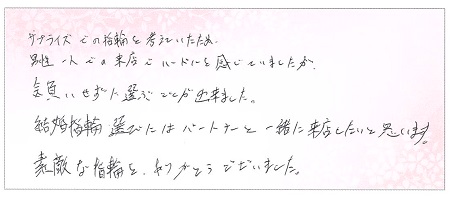 サプライズでの指輪を考えていたため、
男性一人での来店でハードルを感じていましたが、
気負いせずに選ぶことが出来ました。
結婚指輪選びにはパートナーと一緒に来店したいと思います。
素敵な指輪を、ありがとうございました。